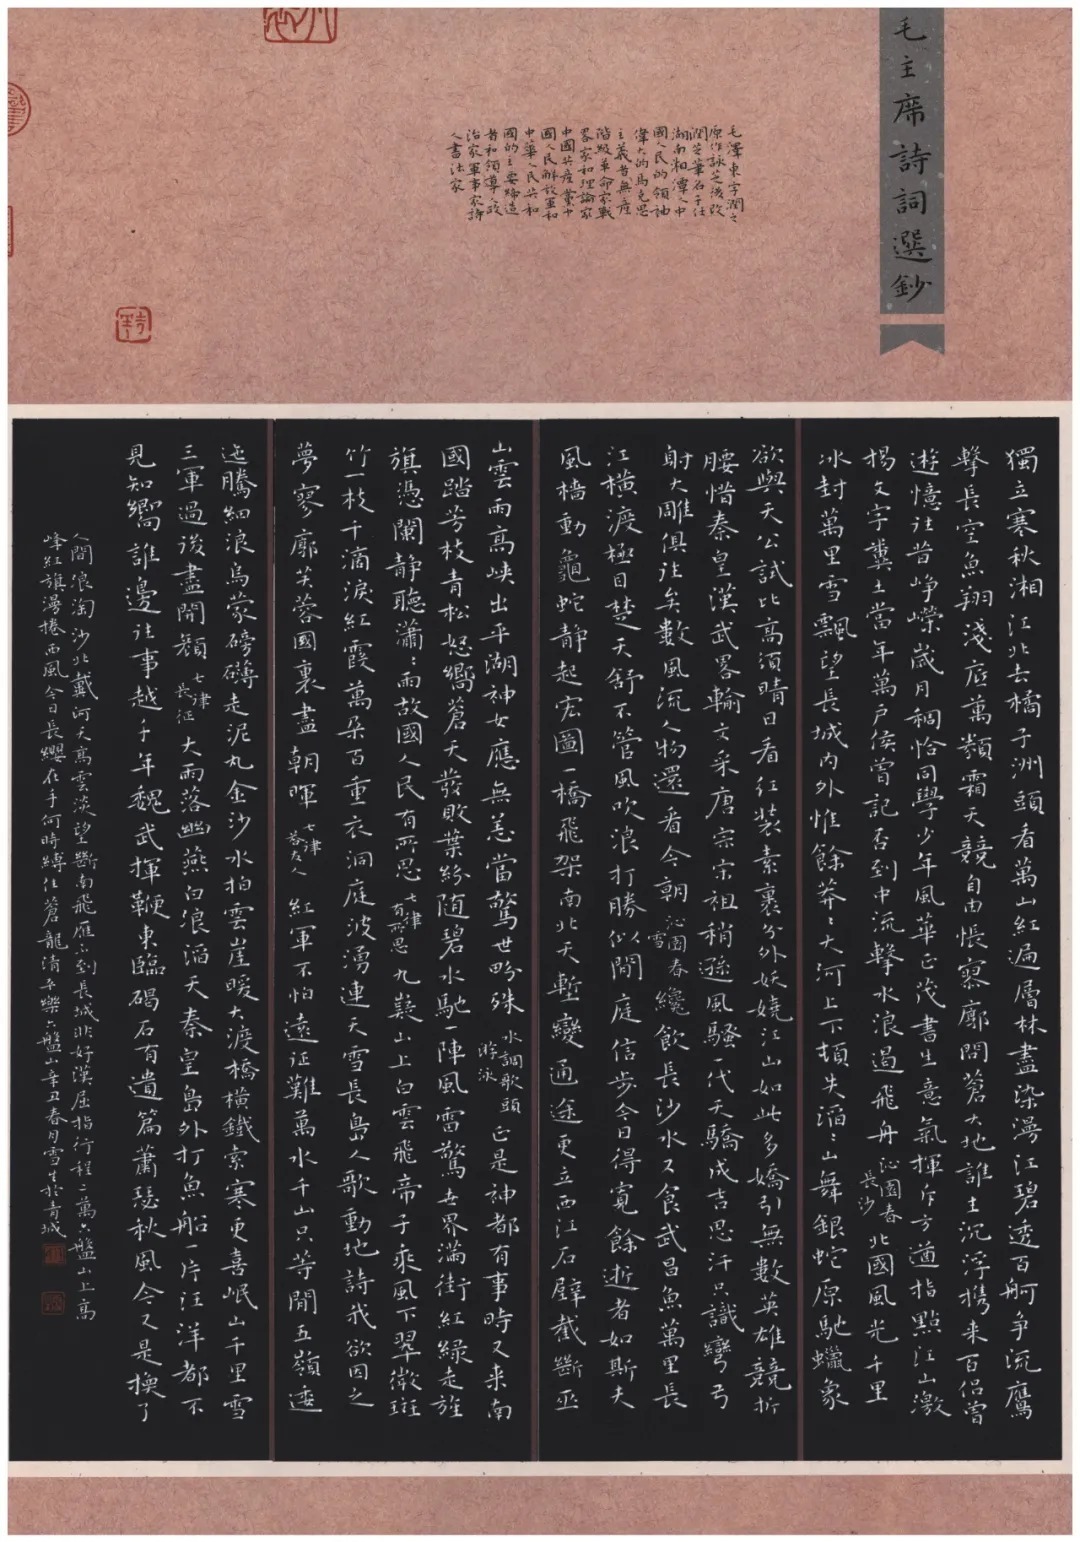 毛主席詩詞選鈔
毛澤東字潤之
原作詠芝後改
潤芝筆名子任
湖南湘潭人中
國人民的領袖
偉大的馬克思
主義者無產
階級革命家戰
畧家和理論家
中國共產黨中
國人民解放軍和
中華人民共和
國的主要締造
者和領導人政
治家軍事家詩
人書法家
獨立寒秋湘江北去橘子洲頭看萬山紅遍層林盡染漫江碧透百舸爭流鷹
擊長空魚翔淺底萬類霜天競自由悵寥廓問蒼大地誰主沉浮携来百侣曾
遊憶往昔崢嶸歲月稠恰同學少年風華正茂書生意氣揮斥方遒指點江山激
揚文字糞土當年萬户侯曾記否到中流擊水浪遏飛舟沁園春長沙北國風光千里
冰封萬里雪飄望長城内外惟餘莽〻大河上下頓失滔〻山舞銀蛇原馳蠟象
欲與天公試比高須晴日看红装素裹分外妖嬈江山如此多嬌引無數英雄競折
腰惜秦皇漢武畧輸文采唐宗宋祖稍遜風騷一代天驕成吉思汗只識彎弓
射大雕俱往矣數風流人物還看今朝沁園春雪纔飲長沙水又食武昌魚萬里長
江橫渡極目楚天舒不管風吹浪打勝似閒庭信步今日得寬餘逝者如斯夫
風檣動龜蛇静起宏圖一橋飛架南北天塹變通途更立西江石壁截斷巫
山雲雨高峽出平湖神女應無恙當驚世畍殊水調歌頭游泳正是神都有事時又来南
國踏芳枝青松怒嚮蒼天發敗葉紛随碧水馳一陣風雷驚世界滿街紅綠走旌
旗憑闌静聽瀟〻雨故國人民有所思七律有所思九嶷山上白雲飛帝子乘風下翠微斑
竹一枝千滴淚紅霞萬朵百重衣洞庭波湧連天雪長島人歌動地詩我欲因之
夢寥廓芙蓉國裏盡朝暉七律答友人紅軍不怕遠征難萬水千山只等閒五嶺逶
迤騰細浪烏蒙磅礴走泥丸金沙水拍雲崖暖大渡橋橫鐵索寒更喜岷山千里雪
三軍過後盡開顏七律長征大雨落幽燕白浪滔天秦皇島外打魚船一片汪洋都不
見知嚮誰邊往事越千年魏武揮鞭東臨碣石有遺篇蕭瑟秋風今又是換了
人間浪淘沙北戴河天高雲淡望斷南飛雁不到長城非好漢屈指行程二萬六盤山上高
峰红旗漫捲西風今日長纓在手何時縛住蒼龍清平樂六盤山辛丑春月雪生於青城